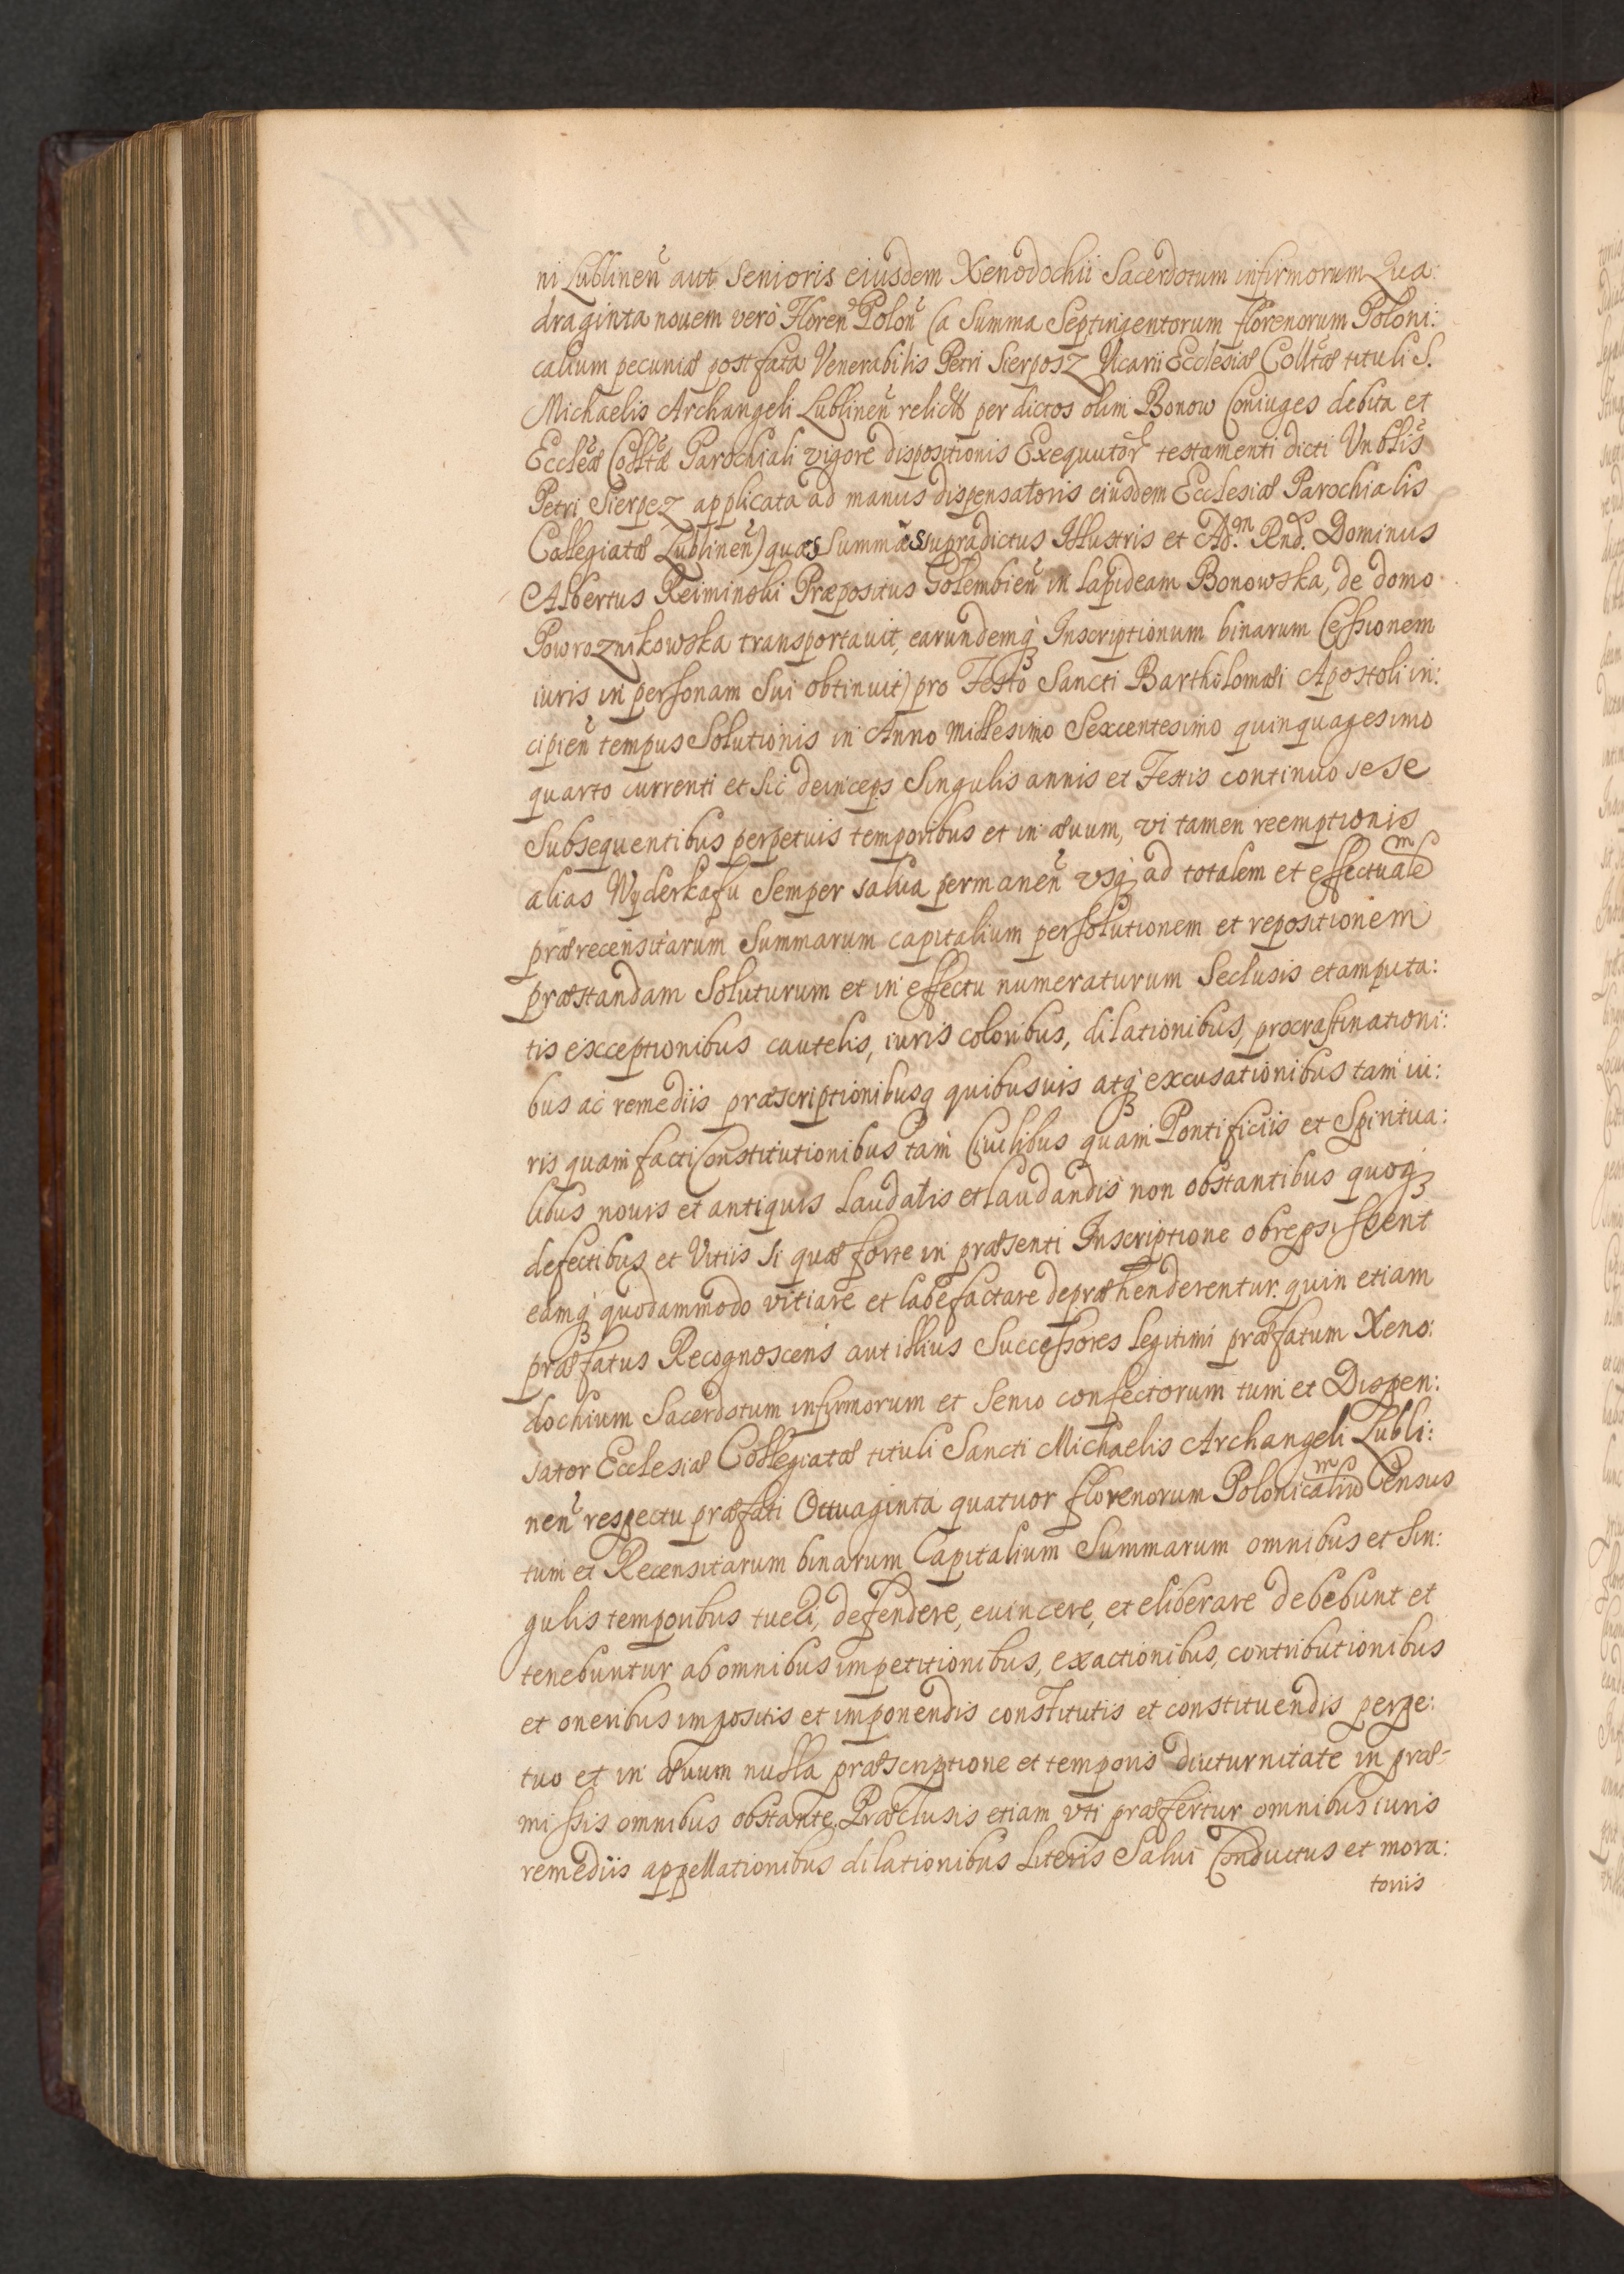 ni Lublinen̄ aut senioris eiusdem Xenodochii Sacerdotum infirmorum Qua:
draginta nouem verò Floren̄ Polon̄ (a Summa Septingentorum florenorum Poloni:
calium pecuniæ post fata Venerabilis Petri Sierposz Vicarii Ecclesiæ Colltæ tituli S.
Michaelis Archangeli Lublinen̄ relictæ per dictos olim Bonow Coniuges debita et
Eccleæ Colltæ Parochiali vigore dispositionis Exequutor̄ testamenti dicti Vnblis
Petri Sierpez applicata ad manus dispensatoris eiusdem Ecclesiæ Parochialis
Collegiatæ Lublinen̄) quas Summas supradictus Illustris et Ad.m Rnd.s Dominus
Albertus Reiminski Præpositus Golembien̄ in lapideam Bonowska, de domo
Powroznikowska transportauit, earundemq₃ Inscriptionum binarum Cessionem
iuris in personam sui obtinuit) pro Festo Sancti Bartholomæi Apostoli in:
cipien̄ tempus Solutionis in Anno Millesimo Sexcentesimo quinquagesimo
quarto currenti et sic deinceps Singulis annis et Festis continuo sese
Subsequentibus perpetuis temporibus et in æuum, vi tamen reemptionis
alias Wyderkafu Semper salua permanen̄ vsq₃ ad totalem et effectualem
prærecensitarum Summarum capitalium persolutionem et repositionem
præstandam Soluturum et in effectu numeraturum Seclusis et amputa:
tis exceptionibus cautelis, iuris coloribus, dilationibus, procrastinationi:
bus ac remediis præscriptionibusq quibusuis atq₃ excusationibus tam iu:
ris quam facti Constitutionibus tam Ciuilibus quam Pontificiis et Spiritua:
libus nouis et antiquis Laudatis et laudandis non obstantibus quoq₃
defectibus et Vitiis si quæ forte in præsenti Inscriptione obrepsissent
eamq₃ quodammodo vitiare et labefactare depræhenderentur. quin etiam
præfatus Recognoscens aut illius Successores legitimi præfatum Xeno:
dochium Sacerdotum infirmorum et Senio confectorum tum et Dispen:
sator Ecclesiæ Collegiatæ tituli Sancti Michaelis Archangeli Lubli:
nen̄ respectu præfati Octuaginta quatuor florenorum Polonicalium Census
tum et Recensitarum binarum Capitalium Summarum omnibus et Sin:
gulis temporibus tueri, defendere, euincere, et eliberare debebunt et
tenebuntur ab omnibus impetitionibus, exactionibus, contributionibus
et oneribus impositis et imponendis constitutis et constituendis perpe:
tuo et in æuum nulla præscriptione et temporis diuturnitate in præ-
missis omnibus obstante. Præclusis etiam vti præfertur omnibus iuris
remediis appellationibus dilationibus Literis Salui Conductus et mora:
toriis